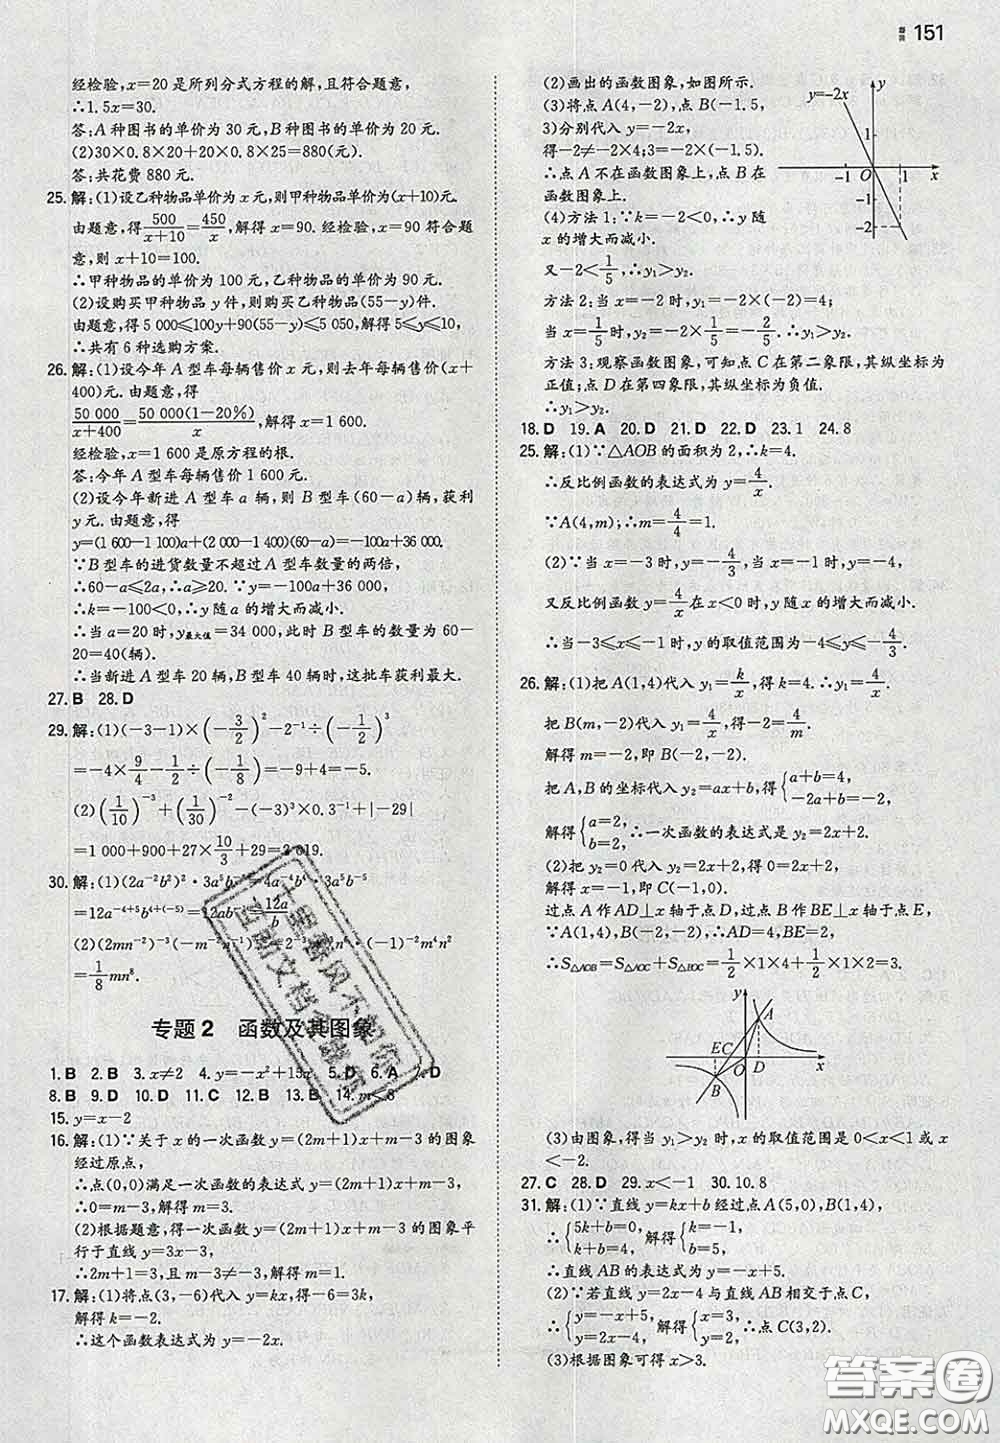 151
经检验,x=20是所列分式方程的解,且符合题意,
∴1.5x=30.
答:A种图书的单价为30元,B种图书的单价为20元.
(2)30×0.8×20+20×0.8×25=880(元).
答:共花费880元.
25.解:(1)设乙种物品单价为x元,则甲种物品单价为(x+10)元.
由题意,得500/(x+10)=450/x,解得x=90.经检验,x=90符合题
意,则x+10=100.
∴甲种物品的单价为100元,乙种物品的单价为90元.
(2)设购买甲种物品y件,则购买乙种物品(55-y)件.
由题意,得5 000≤100y+90(55-y)≤5 050,解得5≤y≤10,
∴共有6种选购方案.
26.解:(1)设今年A型车每辆售价x元,则去年每辆售价(x+
400)元.由题意,得
50 000/(x+400)=50 000(1-20%)/x,解得x=1 600.
经检验,x=1 600是原方程的根.
答:今年A型车每辆售价1 600元.
(2)设今年新进A型车a辆,则B型车(60-a)辆,获利
y元.由题意,得
y=(1 600-1 100)a+(2 000-1 400)(60-a)=-100a+36 000.
∵B型车的进货数量不超过A型车数量的两倍,
∴60-a≤2a,∴a≥20.∵y=-100a+36 000,
∴k=-100<0,∴y随a的增大而减小.
∴当a=20时,y最大值=34 000,此时B型车的数量为60-
20=40(辆).
∴当新进A型车20辆,B型车40辆时,这批车获利最大.
27.B 28.D
29.解:(1)(-3-1)×(-3/2)²-2⁻¹÷(-1/2)³
=-4×9/4-1/2÷(-1/8)=-9+4=-5.
(2)(1/10)⁻³+(1/30)⁻²-(-3)³×0.3⁻¹+|-29|
=1 000+900+27×10/3+29=2 019.
30.解:(1)(2a⁻²b²)²·3a⁵b⁻⁵=4a⁻⁴b⁴·3a⁵b⁻⁵
=12a⁻⁴⁺⁵b⁴⁺⁽⁻⁵⁾=12ab⁻¹=12a/b.
(2)(2mn⁻²)⁻³(-m⁻²n⁻¹)
m⁴n²
=-1/8mn⁸.
专题2 函数及其图象
1.B 2.B 3.x≠2 4.y=-x²+15x 5.D 6.A 7.D
8.B 9.D 10.D 11.C 12.B 13.B 14.m<8
15.y=x-2
16.解:(1)∵关于x的一次函数y=(2m+1)x+m-3的图象
经过原点,
∴点(0,0)满足一次函数的表达式y=(2m+1)x+m-3,
∴0=m-3,解得m=3.
(2)根据题意,得一次函数y=(2m+1)x+m-3的图象平
行于直线y=3x-3,
∴2m+1=3,且m-3≠-3,解得m=1.
17.解:(1)将点(3,-6)代入y=kx,得-6=3k,
解得k=-2.
∴这个函数表达式为y=-2x.
(2)画出的函数图象,如图所示.
(3)将点A(4,-2),点B(-1.5,
3)分别代入y=-2x,
得-2≠-2×4;3=-2×(-1.5).
∴点A不在函数图象上,点B在
函数图象上.
(4)方法1:∵k=-2<0,∴y随
x的增大而减小.
y=-2x
y
1
-1
O
1
x
-1
-2
又-2<1/5,∴y₁>y₂.
方法2:当x=-2时,y₁=-2×(-2)=4;
当x=1/5时,y₂=-2×1/5=-2/5.∴y₁>y₂.
方法3:观察函数图象,可知点C在第二象限,其纵坐标为
正值;点D在第四象限,其纵坐标为负值.
∴y₁>y₂.
18.D 19.A 20.D 21.D 22.D 23.1 24.8
25.解:(1)∵△AOB的面积为2,∴k=4.
∴反比例函数的表达式为y=4/x.
∵A(4,m);∴m=4/4=1.
(2)∵当x=-3时,y=-4/3;当x=-1时,y=-4,
又反比例函数y=4/x在x<0时,y随x的增大而减小.
∴当-3≤x≤-1时,y的取值范围为-4≤y≤-4/3.
26.解:(1)把A(1,4)代入y₁=k/x,得k=4.∴y₁=4/x.
把B(m,-2)代入y₁=4/x,得-2=4/m.
解得m=-2,即B(-2,-2).
把A,B的坐标代入y₂=ax+b,得{a+b=4, -2a+b=-2,
解得{a=2, b=2, ∴一次函数的表达式是y₂=2x+2.
(2)把y₂=0代入y₂=2x+2,得2x+2=0,
解得x=-1,∴点C(-1,0).
过点A作AD⊥x轴于点D,过点B作BE⊥x轴于点E,
∵A(1,4),B(-2,-2),∴AD=4,BE=2,
∴S△AOB=S△AOC+S△BOC=1/2×1×4+1/2×1×2=3.
y
A
EC
O
D
x
B
(3)由图象,得当y₁>y₂时,x的取值范围是0<x<1或x
<-2.
27.C 28.D 29.x<-1 30.10.8
31.解:(1)∵直线y=kx+b经过点A(5,0),B(1,4),
∴{5k+b=0, k+b=4, 解得{k=-1, b=5,
∴直线AB的表达式为y=-x+5.
(2)∵若直线y=2x-4与直线AB相交于点C,
∴{y=-x+5, y=2x-4, 解得{x=3, y=2, ∴点C(3,2).
(3)根据图象可得x>3.
答案圈
MXQE.COM